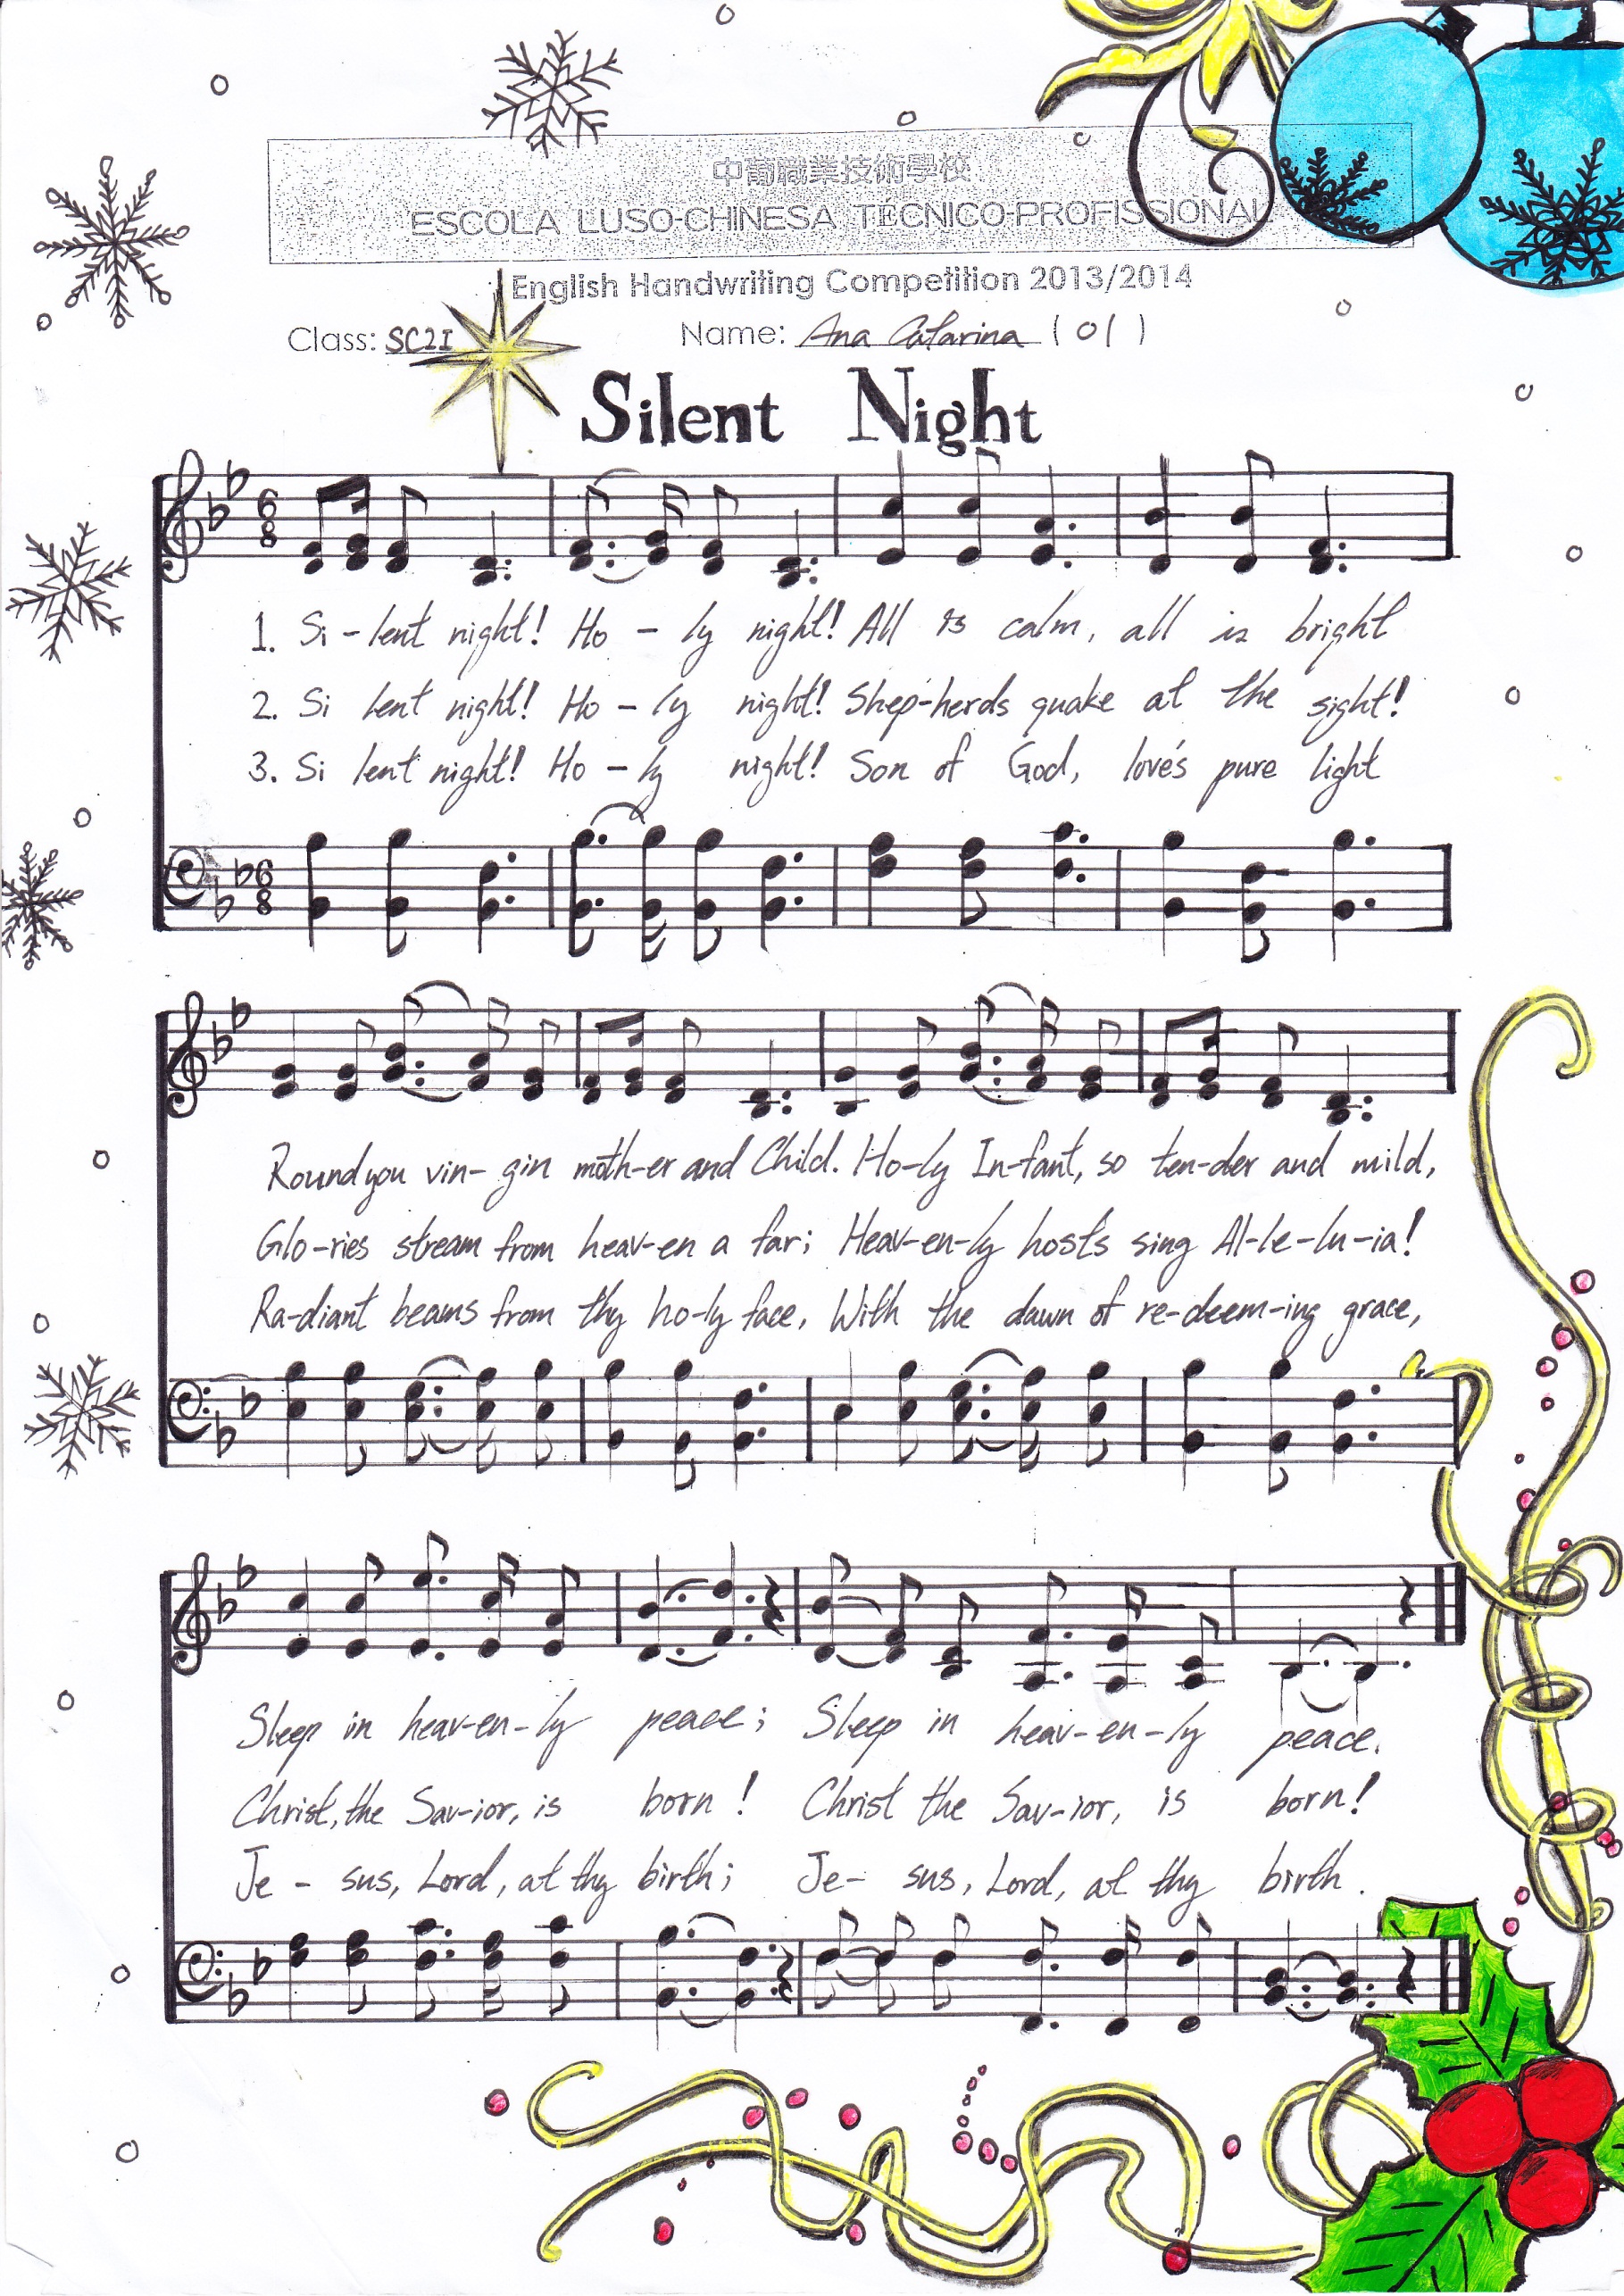 中葡職業技術學校
ESCOLA LUSO-CHINESA TÉCNICO-PROFISSIONAL
English Handwriting Competition 2013/2014
Class: SC2I Name: Ana Catarina (01)
Silent Night
6 8
1. Si-lent night! Ho - ly night! All is calm, all is bright
2. Si lent night! Ho - ly night! Shep-herds quake at the sight!
3. Si lent night! Ho - ly night! Son of God, love's pure light
6 8
Round you vin- gin moth-er and Child. Ho-ly In-fant, so ten-der and mild,
Glo-ries stream from heav-en a far; Heav-en-ly hosts sing Al-le-lu-ia!
Ra-diant beams from thy ho-ly face, With the dawn of re-deem-ing grace,
Sleep in heav-en-ly peace; Sleep in heav-en-ly peace.
Christ, the Sav-ior, is born! Christ the Sav-ior, is born!
Je - sus, Lord, at thy birth; Je- sus, Lord, at thy birth.